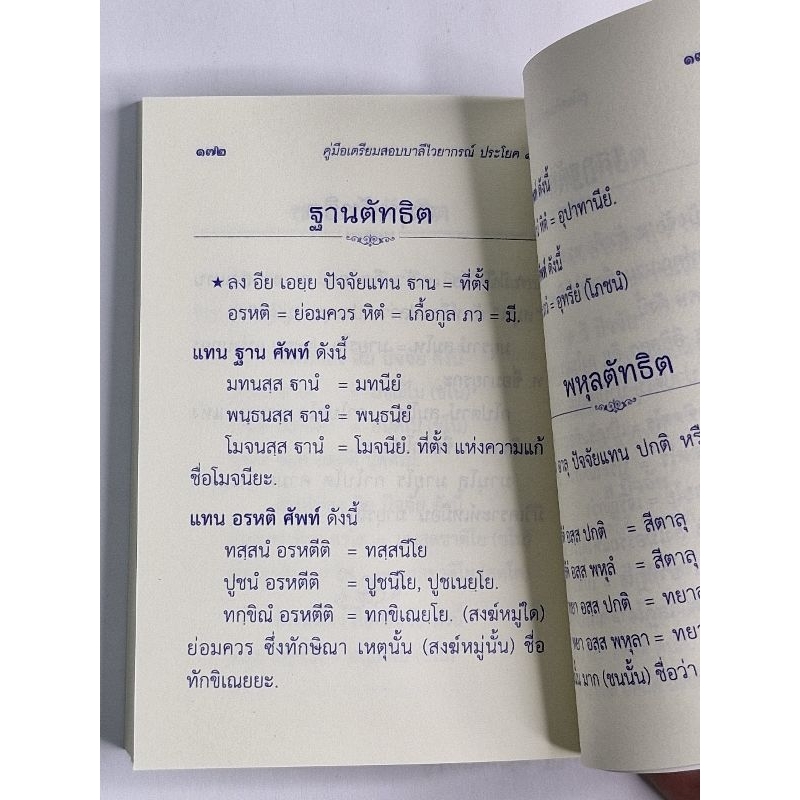 ๑๗๒ คู่มือเตรียมสอบบาลีไวยากรณ์ ประโยค
ฐานตัทธิต
★ลง อีย เอยฺย ปัจจัยแทน ฐาน = ที่ตั้ง
อรหติ = ย่อมควร หิตํ = เกื้อกูล ภว = มี.
แทน ฐาน ศัพท์ ดังนี้
มทนสฺส ฐานํ = มทนียํ
พนฺธนสฺส ฐานํ = พนฺธนียํ
โมจนสฺส ฐานํ = โมจนียํ. ที่ตั้ง แห่งความแก้
ชื่อโมจนียะ.
แทน อรหติ ศัพท์ ดังนี้
ทสฺสนํ อรหตีติ = ทสฺสนีโย
ปูชนํ อรหตีติ = ปูชนีโย, ปูชเนยฺโย.
ทกฺขิณํ อรหตีติ = ทกฺขิเณยฺโย. (สงฆ์หมู่ใด)
ย่อมควร ซึ่งทักษิณา เหตุนั้น (สงฆ์หมู่นั้น) ชื่อ
ทักขิเณยยะ.
ดังนี้
หิตํ = อุปาทานียํ.
ดังนี้
= อุทรียํ (โภชนํ)
พหุลตัทธิต
ปัจจัยแทน ปกติ
อสฺส ปกติ = สีตาลุ
อสฺส พหุลํ = สีตาลุ
อสฺส ปกติ =
อสฺส พหุลา =
มาก (ชนนั้น) ชื่อว่า